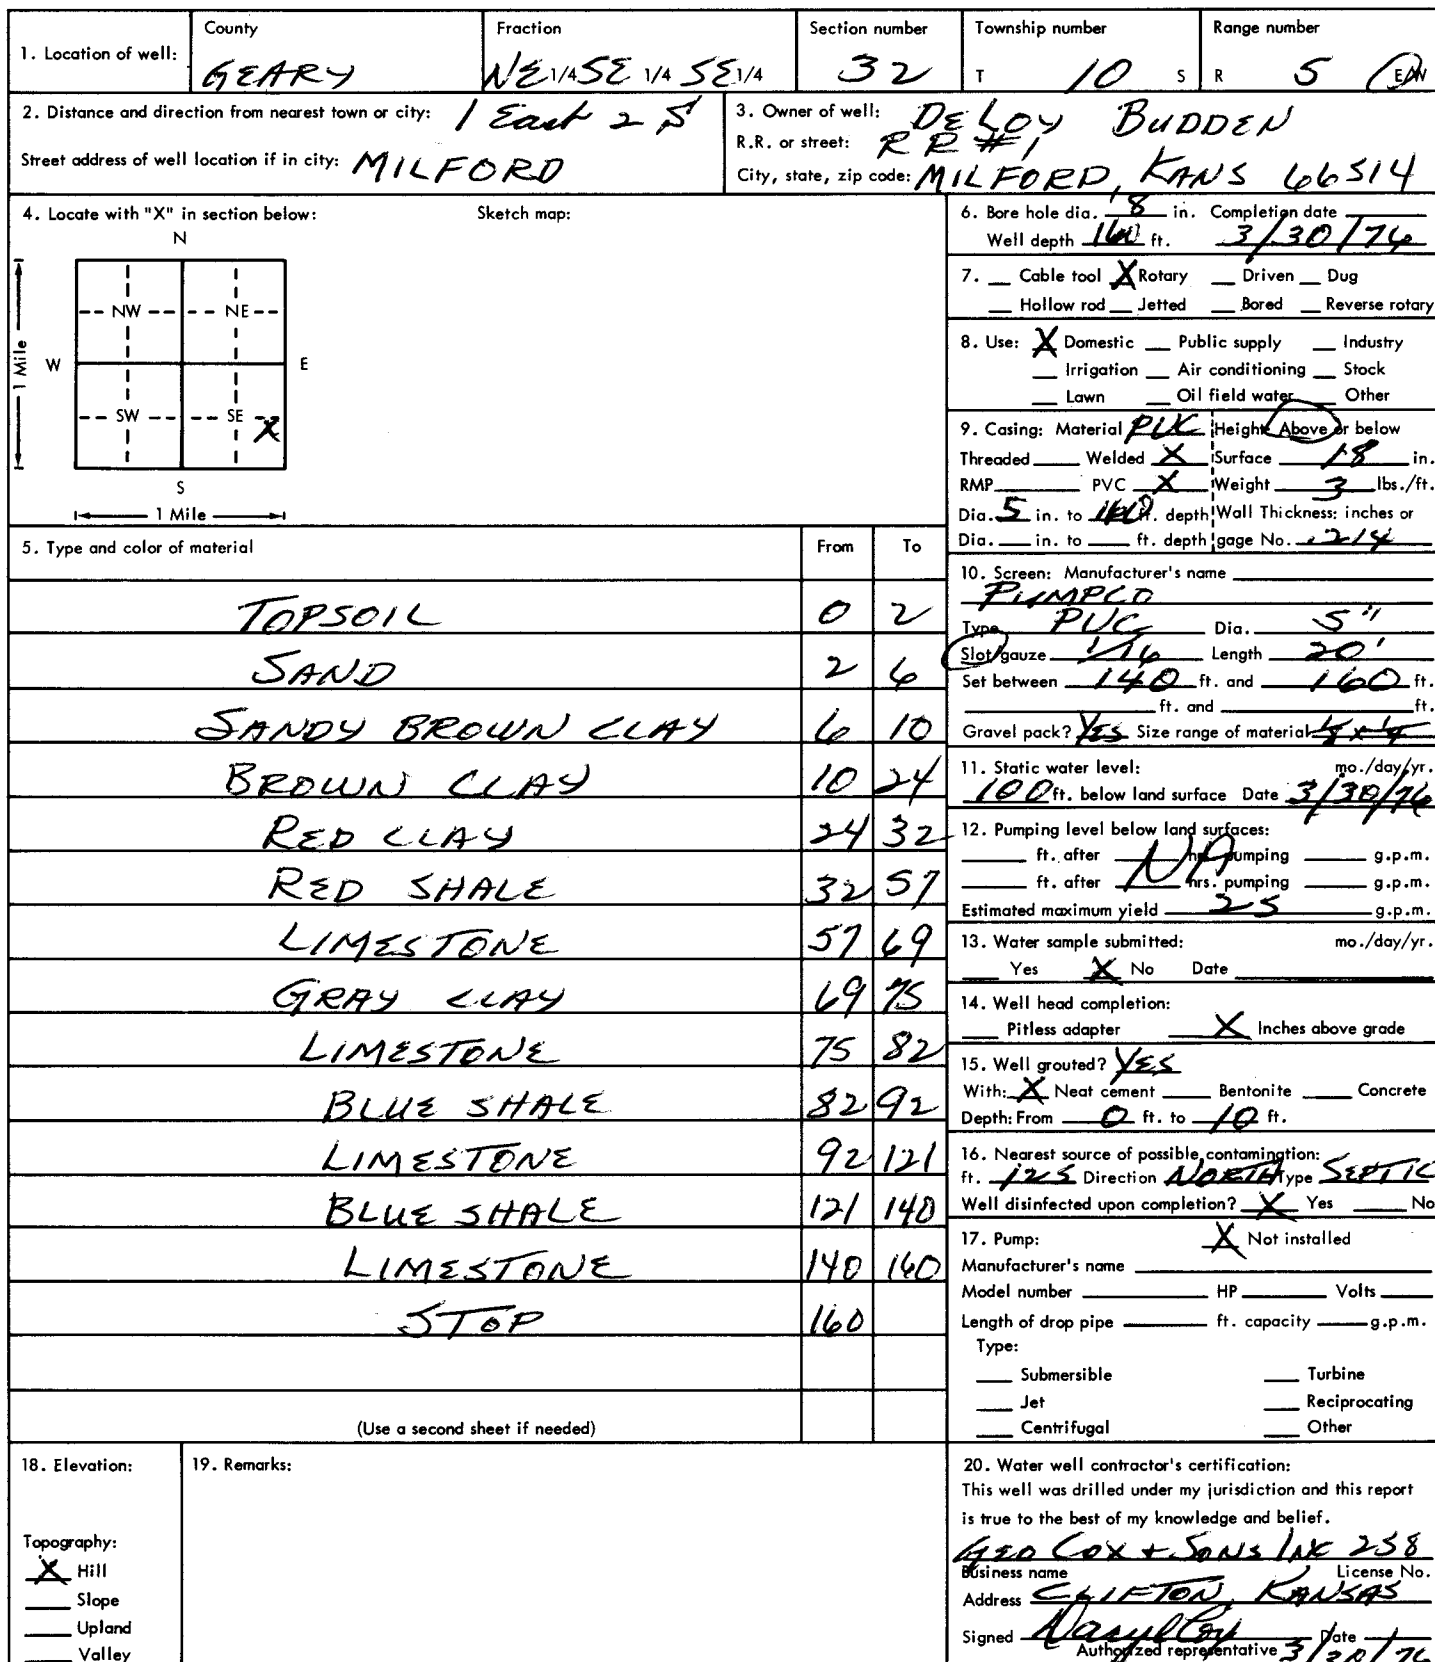 1. Location of well: County GEARY Fraction NE 1/4 SE 1/4 SE 1/4 Section number 32 Township number T 10 S Range number R 5 E/W
2. Distance and direction from nearest town or city: 1 East 2 S
Street address of well location if in city: MILFORD
3. Owner of well: DELOY BUDDEN
R.R. or street: RR #1
City, state, zip code: MILFORD, KANS 66514
4. Locate with "X" in section below: Sketch map:
N
NW NE
W E
1 Mile
SW SE X
S
1 Mile
5. Type and color of material From To
TOPSOIL 0 2
SAND 2 6
SANDY BROWN CLAY 6 10
BROWN CLAY 10 24
RED CLAY 24 32
RED SHALE 32 57
LIMESTONE 57 69
GRAY CLAY 69 75
LIMESTONE 75 82
BLUE SHALE 82 92
LIMESTONE 92 121
BLUE SHALE 121 140
LIMESTONE 140 160
STOP 160
(Use a second sheet if needed)
6. Bore hole dia. 8 in. Completion date
Well depth 160 ft. 3/30/76
7. __ Cable tool X Rotary __ Driven __ Dug
__ Hollow rod __ Jetted __ Bored __ Reverse rotary
8. Use: X Domestic __ Public supply __ Industry
__ Irrigation __ Air conditioning __ Stock
__ Lawn __ Oil field water __ Other
9. Casing: Material PVC Height: Above or below
Threaded ____ Welded X Surface 18 in.
RMP ____ PVC X Weight 3 lbs./ft.
Dia. 5 in. to 160 ft. depth Wall Thickness: inches or
Dia. __ in. to __ ft. depth gage No. .214
10. Screen: Manufacturer's name
PUMPCO
Type PVC Dia. 5"
Slot/gauze 1/16 Length 20'
Set between 140 ft. and 160 ft.
____ ft. and ____ ft.
Gravel pack? YES Size range of material 1/8 x 1/4
11. Static water level: mo./day/yr.
100 ft. below land surface Date 3/30/76
12. Pumping level below land surfaces:
____ ft. after NA hrs. pumping ____ g.p.m.
____ ft. after ____ hrs. pumping ____ g.p.m.
Estimated maximum yield 25 g.p.m.
13. Water sample submitted: mo./day/yr.
__ Yes X No Date
14. Well head completion:
__ Pitless adapter X Inches above grade
15. Well grouted? YES
With: X Neat cement __ Bentonite __ Concrete
Depth: From 0 ft. to 10 ft.
16. Nearest source of possible contamination:
ft. 125 Direction NORTH Type SEPTIC
Well disinfected upon completion? X Yes __ No
17. Pump: X Not installed
Manufacturer's name
Model number ____ HP ____ Volts ____
Length of drop pipe ____ ft. capacity ____ g.p.m.
Type:
__ Submersible __ Turbine
__ Jet __ Reciprocating
__ Centrifugal __ Other
18. Elevation:
Topography:
X Hill
__ Slope
__ Upland
__ Valley
19. Remarks:
20. Water well contractor's certification:
This well was drilled under my jurisdiction and this report
is true to the best of my knowledge and belief.
GEO COX + SONS INC 258
Business name License No.
Address CLIFTON, KANSAS
Signed Daryl Cox Date 3/30/76
Authorized representative